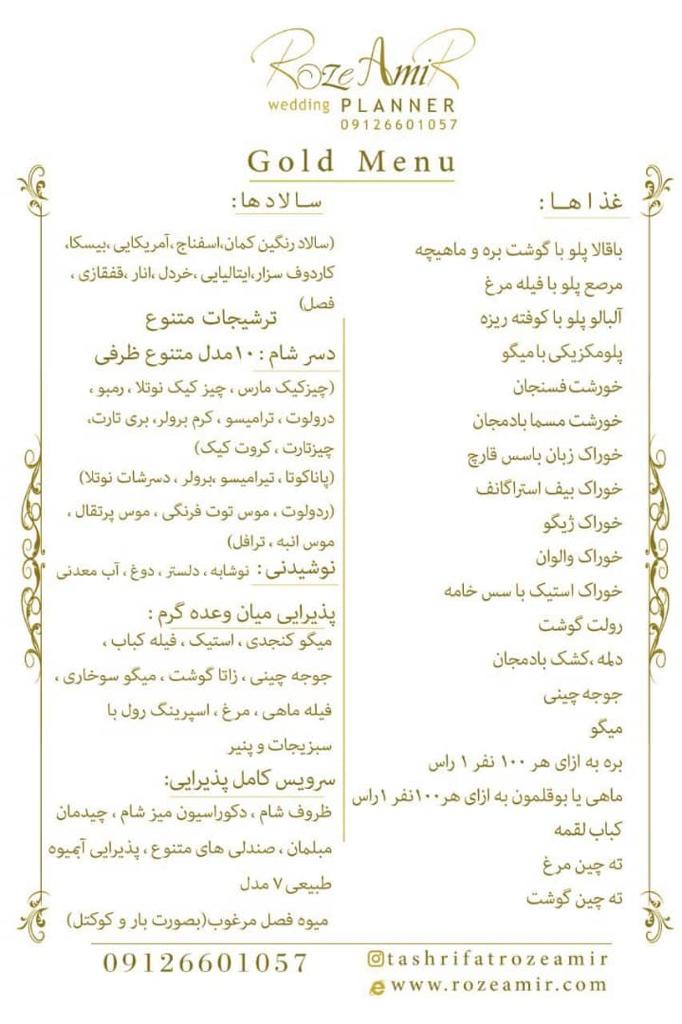 RozeAmiR
wedding PLANNER
09126601057
Gold Menu
غذاها:
باقالا پلو با گوشت بره و ماهیچه
مرصع پلو با فیله مرغ
آلبالو پلو با کوفته ریزه
پلومکزیکی با میگو
خورشت فسنجان
خورشت مسما بادمجان
خوراک زبان باسس قارچ
خوراک بیف استراگانف
خوراک ژیگو
خوراک والوان
خوراک استیک با سس خامه
رولت گوشت
دلمه ،کشک بادمجان
جوجه چینی
میگو
بره به ازای هر ۱۰۰ نفر ۱ راس
ماهی یا بوقلمون به ازای هر۱۰۰نفر ۱راس
کباب لقمه
ته چین مرغ
ته چین گوشت
سالادها:
(سالاد رنگین کمان،اسفناج ،آمریکایی ،بیسکا،
کاردوف سزار،ایتالیایی ،خردل ،انار ،قفقازی ،
فصل)
ترشیجات متنوع
دسر شام : ۱۰مدل متنوع ظرفی
(چیزکیک مارس ، چیز کیک نوتلا ، رمبو ،
درولوت ، ترامیسو ، کرم برولر، بری تارت،
چیزتارت ، کروت کیک)
(پاناکوتا ، تیرامیسو ،برولر ، دسرشات نوتلا)
(ردولوت ، موس توت فرنگی ، موس پرتقال ،
موس انبه ، ترافل)
نوشیدنی : نوشابه ، دلستر ، دوغ ، آب معدنی
پذیرایی میان وعده گرم :
میگو کنجدی ، استیک ، فیله کباب ،
جوجه چینی ، زاتا گوشت ، میگو سوخاری ،
فیله ماهی ، مرغ ، اسپرینگ رول با
سبزیجات و پنیر
سرویس کامل پذیرایی:
ظروف شام ، دکوراسیون میز شام ، چیدمان
مبلمان ، صندلی های متنوع ، پذیرایی آبمیوه
طبیعی ۷ مدل
میوه فصل مرغوب(بصورت بار و کوکتل)
09126601057
tashrifatrozeamir
www.rozeamir.com